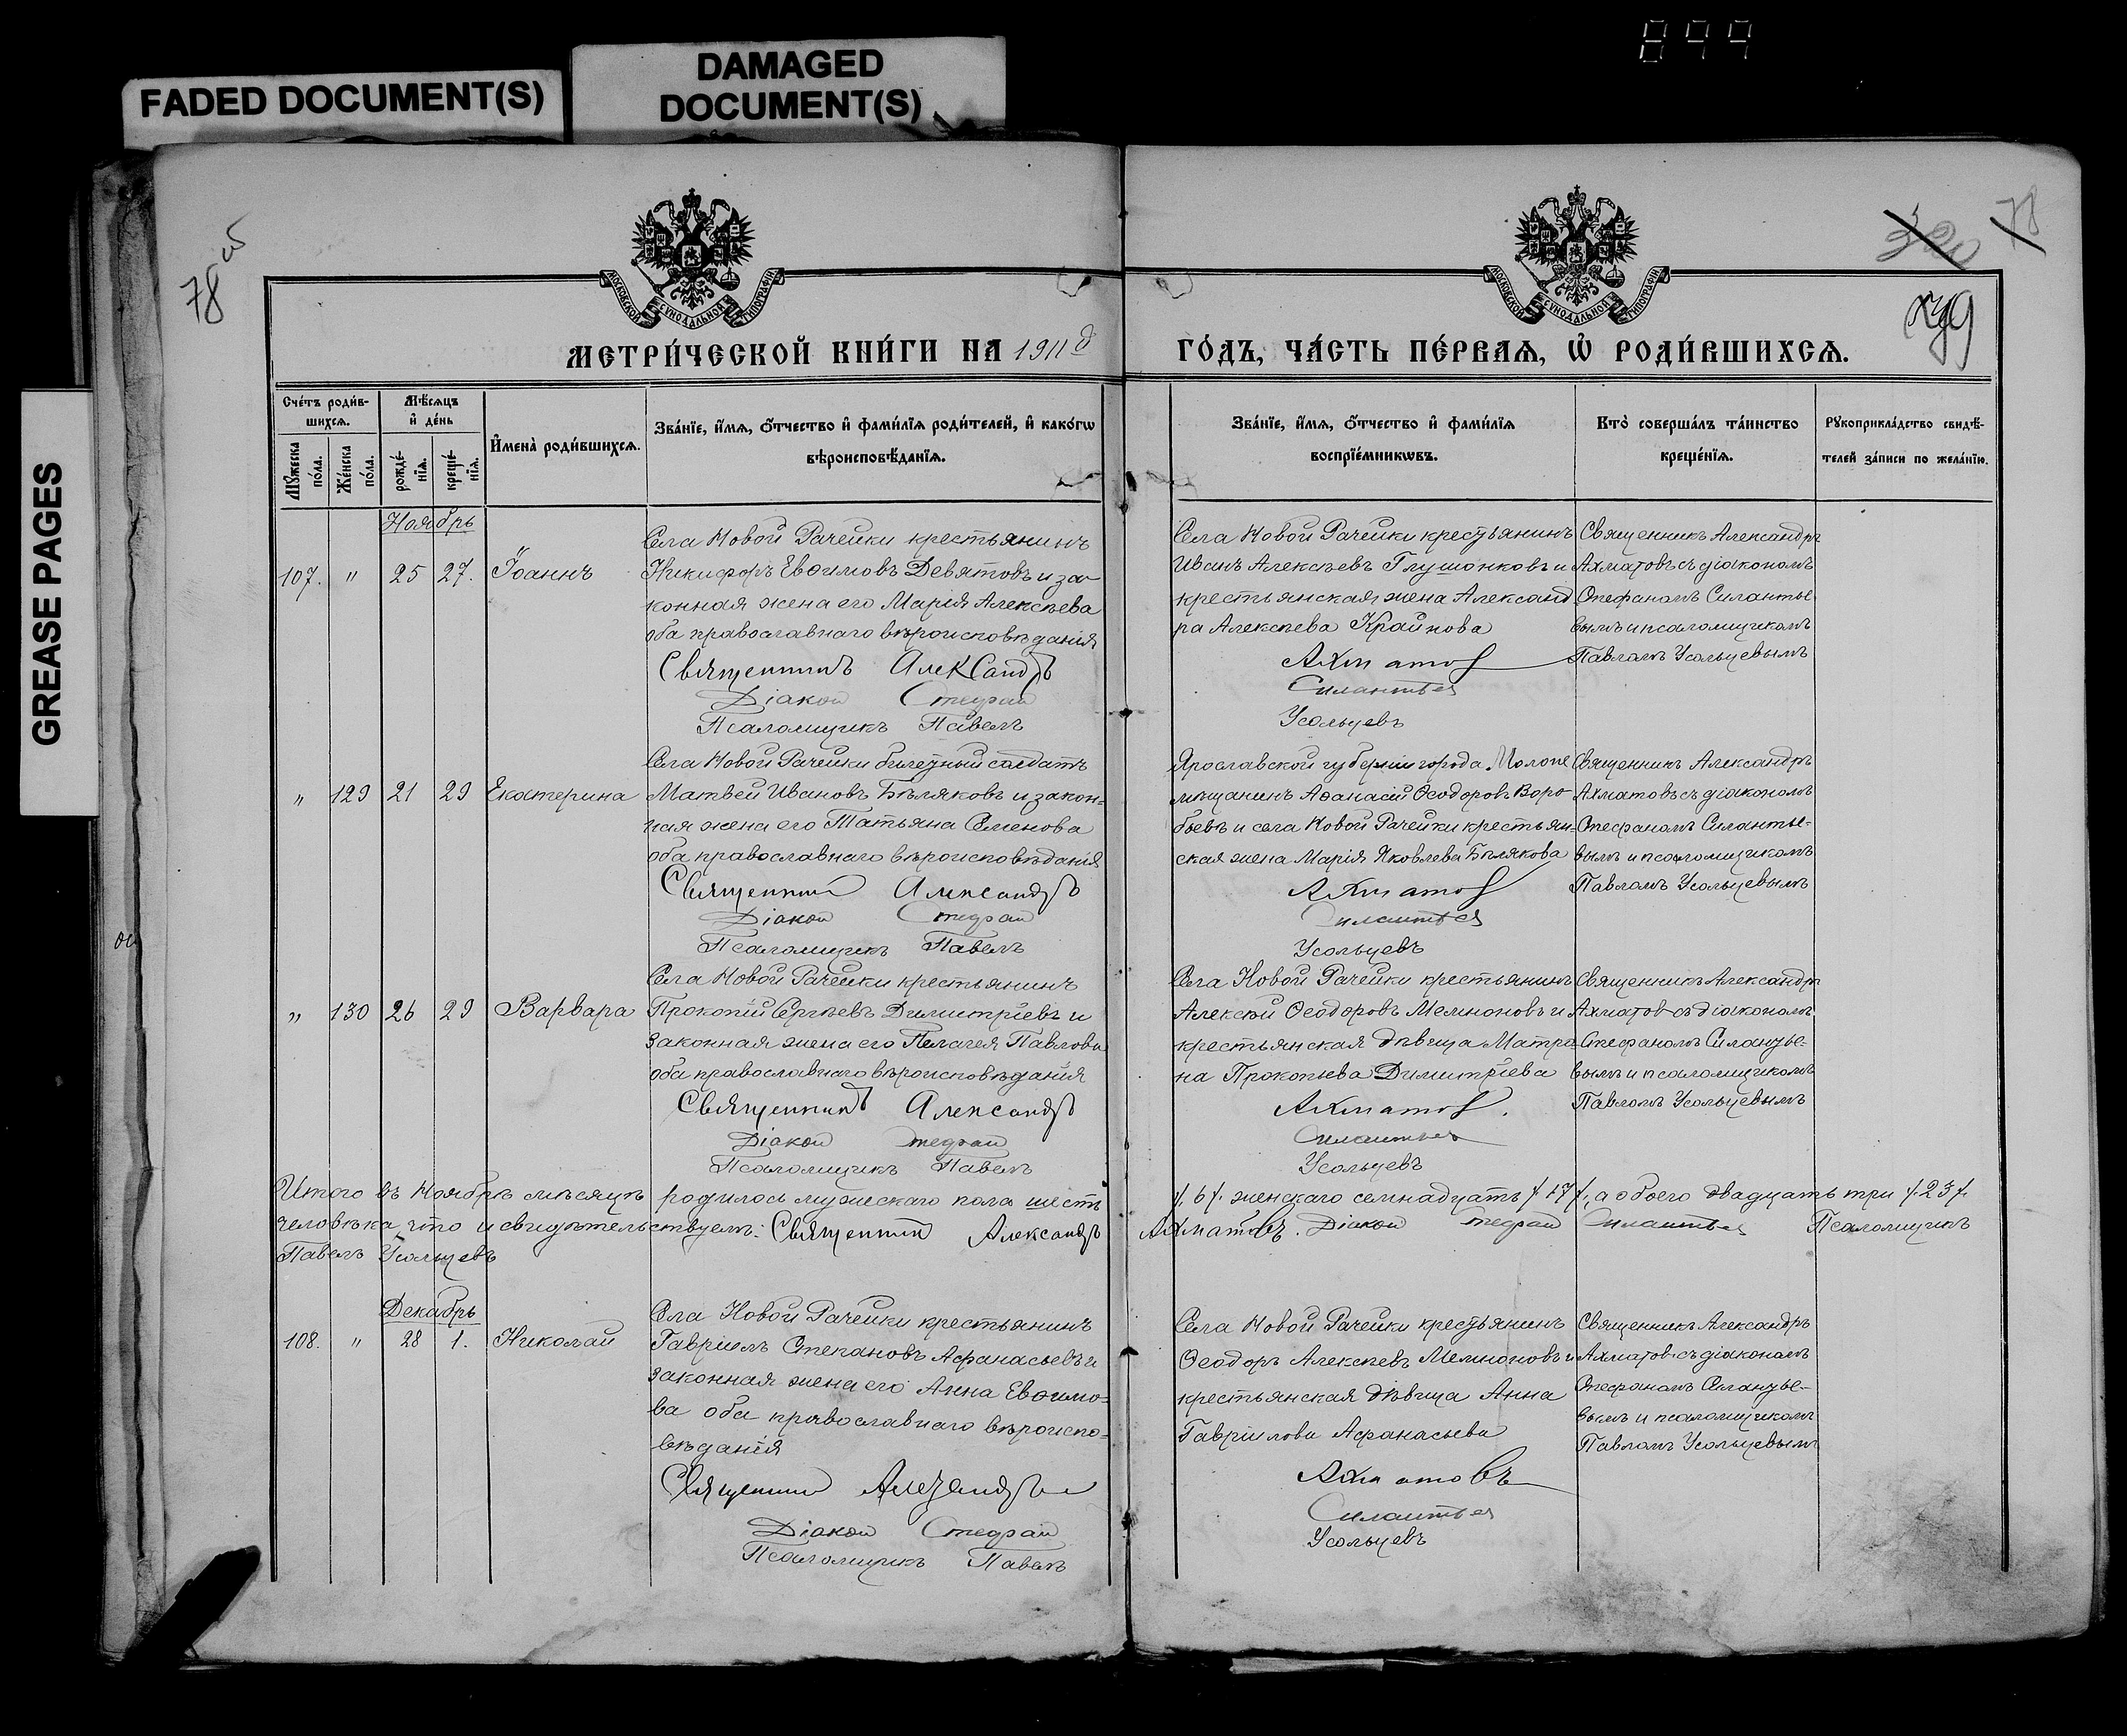 899
FADED DOCUMENT(S)
DAMAGED
DOCUMENT(S)
GREASE PAGES
78 об
78
МОСКОВСКОЙ СѴНОДАЛЬНОЙ ТИПОГРАФІИ
МОСКОВСКОЙ СѴНОДАЛЬНОЙ ТИПОГРАФІИ
МЕТРИ́ЧЕСКОЙ КНИ́ГИ НА 1911й
ГО́ДЪ, ЧА́СТЬ ПЕ́РВАѦ, Ѡ҆ РОДИ́ВШИХСѦ.
Сче́тъ роди́в-
шихсѧ.
Мꙋжеска
по́ла.
Же́нска
по́ла.
Мѣ́сѧцъ
и҆ де́нь
рожде́-
нїѧ.
креще́-
нїѧ.
И҆мена̀ роди́вшихсѧ.
Зва́нїе, и҆́мѧ, ѻ҆́тчество и҆ фами́лїѧ роди́телей, и҆ како́гѡ
вѣроисповѣ́данїѧ.
Зва́нїе, и҆́мѧ, ѻ҆́тчество и҆ фами́лїѧ
воспрїе́мникѡвъ.
Кто̀ соверша́лъ та́инство
креще́нїѧ.
Рꙋкоприкла́дство свидѣ́-
телей за́писи по жела́нїю.
Ноябрь
107. " 25 27. Іоаннъ
Села Новой Рачейки крестьянинъ
Никифоръ Евѳимовъ Девятовъ и за-
конная жена его Марія Алексѣева
оба православнаго вѣроисповѣданія
Священникъ Александръ
Діаконъ Стефанъ
Псаломщикъ Павелъ
Села Новой Рачейки крестьянинъ
Иванъ Алексѣевъ Глушонковъ и
крестьянская жена Александ
ра Алексѣева Крайнова
Ахматовъ
Силантьевъ
Усольцевъ
Священникъ Александръ
Ахматовъ съ діакономъ
Стефаномъ Силантье-
вымъ и псаломщикомъ
Павломъ Усольцевымъ
" 129 21 29 Екатерина
Села Новой Рачейки билетный солдатъ
Матвей Ивановъ Бѣляковъ и закон-
ная жена его Татьяна Семенова
оба православнаго вѣроисповѣданія
Священникъ Александръ
Діаконъ Стефанъ
Псаломщикъ Павелъ
Ярославской губерніи города Мологе
мѣщанинъ Аѳанасій Ѳеодоровъ Воро-
бьевъ и села Новой Рачейки крестьян-
ская жена Марія Яковлева Бѣлякова
Ахматовъ
Силантьевъ
Усольцевъ
Священникъ Александръ
Ахматовъ съ діакономъ
Стефаномъ Силантье-
вымъ и псаломщикомъ
Павломъ Усольцевымъ
" 130 26 29 Варвара
Села Новой Рачейки крестьянинъ
Прокопій Сергѣевъ Димитріевъ и
законная жена его Пелагея Павлова
оба православнаго вѣроисповѣданія
Священникъ Александръ
Діаконъ Стефанъ
Псаломщикъ Павелъ
Села Новой Рачейки крестьянинъ
Алексѣй Ѳеодоровъ Мемноновъ и
крестьянская дѣвица Матре
на Прокопьева Димитріева
Ахматовъ.
Силантьевъ
Усольцевъ
Священникъ Александръ
Ахматовъ съ діакономъ
Стефаномъ Силантье-
вымъ и псаломщикомъ
Павломъ Усольцевымъ
Итого въ Ноябрѣ мѣсяцѣ родилось мужескаго пола шесть /. 6 /. женскаго семнадцать /. 17 /., а обоего двадцать три /. 23 /.
человѣка, что и свидѣтельствуемъ: Священникъ Александръ Ахматовъ. Діаконъ Стефанъ Силантьевъ Псаломщикъ
Павелъ Усольцевъ
Декабрь
108. " 28 1. Николай
Села Новой Рачейки крестьянинъ
Гавріилъ Степановъ Афанасьевъ и
законная жена его Анна Евѳимо-
ва оба православнаго вѣроиспо-
вѣданія
Священникъ Александръ
Діаконъ Стефанъ
Псаломщикъ Павелъ
Села Новой Рачейки крестьянинъ
Ѳеодоръ Алексѣевъ Мемноновъ и
крестьянская дѣвица Анна
Гавріилова Афанасьева
Ахматовъ
Силантьевъ
Усольцевъ
Священникъ Александръ
Ахматовъ съ діакономъ
Стефаномъ Силантье-
вымъ и псаломщикомъ
Павломъ Усольцевымъ